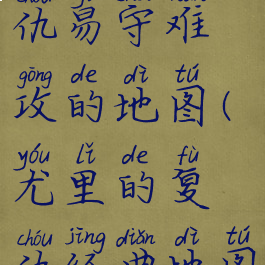 仇易守难
gōng de dì tú
攻的地图(
yóu lǐ de fù
尤里的复
chóu jīng diǎn dì tú
仇经典地图